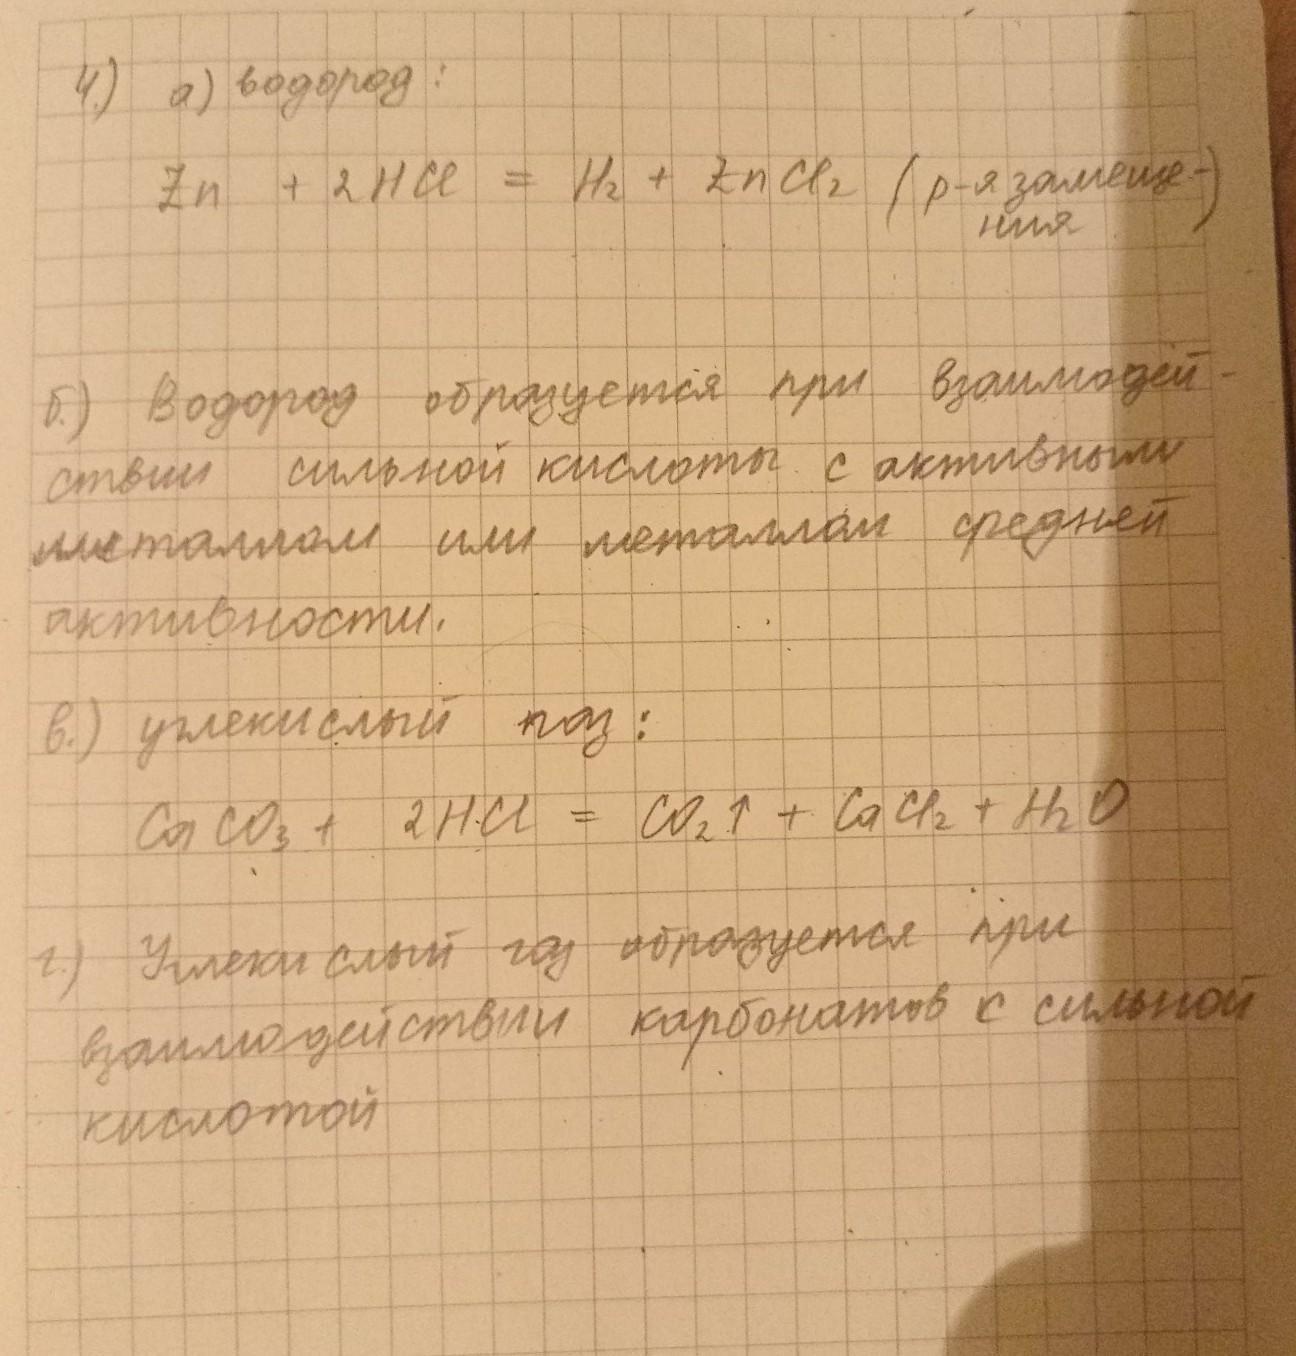 4.) а) водород:
Zn + 2HCl = H₂ + ZnCl₂ (р-я замеще-
ния)
б.) Водород образуется при взаимодей-
ствии сильной кислоты с активным
металлом или металлом средней
активности.
в.) углекислый газ:
CaCO₃ + 2HCl = CO₂↑ + CaCl₂ + H₂O
г.) Углекислый газ образуется при
взаимодействии карбонатов с сильной
кислотой